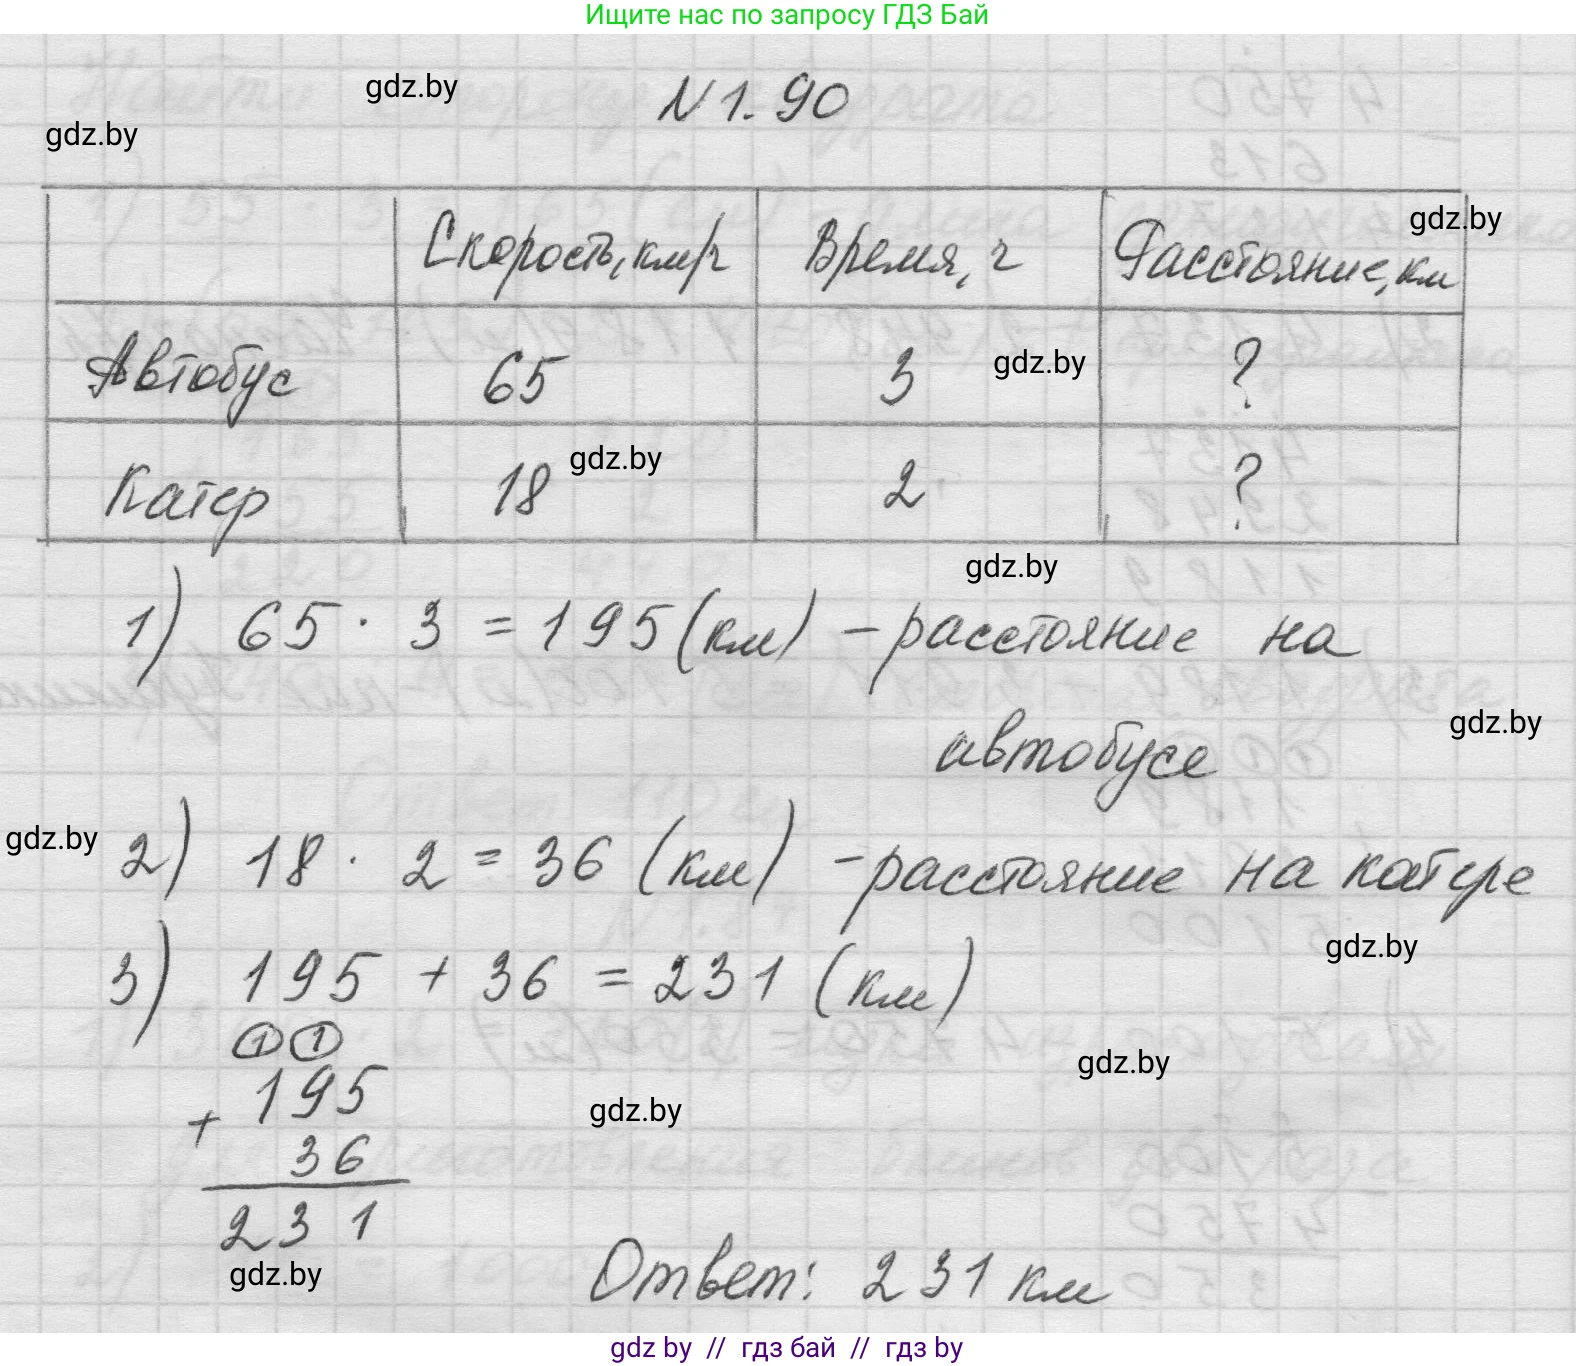 Ищите нас по запросу ГДЗ Бай
gdz.by
N 1. 90
gdz.by
gdz.by
Скорость, км/ч Время, ч Расстояние, км
Автобус 65 3 gdz.by ?
Катер 18 gdz.by 2 ?
gdz.by
1) 65 · 3 = 195 (км) - расстояние на
автобусе
gdz.by
gdz.by
2) 18 · 2 = 36 (км) - расстояние на катере
gdz.by
3) 195 + 36 = 231 (км)
1 1
gdz.by
195
gdz.by
+
36
231
gdz.by
Ответ: 231 км
gdz by // гдз бай // гдз by